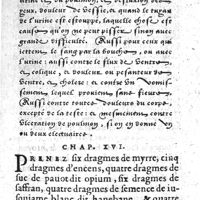 urine et du poulmon, et destruction des
reux, douleur de vessie, et quand le tuyau
de l'urine est estouppé, laquelle chose est
cause qu'on ne peut pisser, sinon avec
grande difficulté. Aussi pour ceux qui
iettent le sang par la bouche, ou avec
urine: aussi contre le flux de ventre,
colique, et douleur ou pesanteur de
ventre, et cholere: et contre un
lement, lequel provient personne.
Aussi contre toute douleur du corps,
excepté de la teste: et mesmement contre
vlceration de poulmon, si on y donne un
ou deux electuaires.
CHAP. XVI.
PRENEZ six dragmes de myrre, cinq
dragmes d'encens, quatre dragmes de
suc de pauot dit opium, six dragmes de
saffran, quatre dragmes de semence de iu-
squiame blanc dit hanebane, & quatre